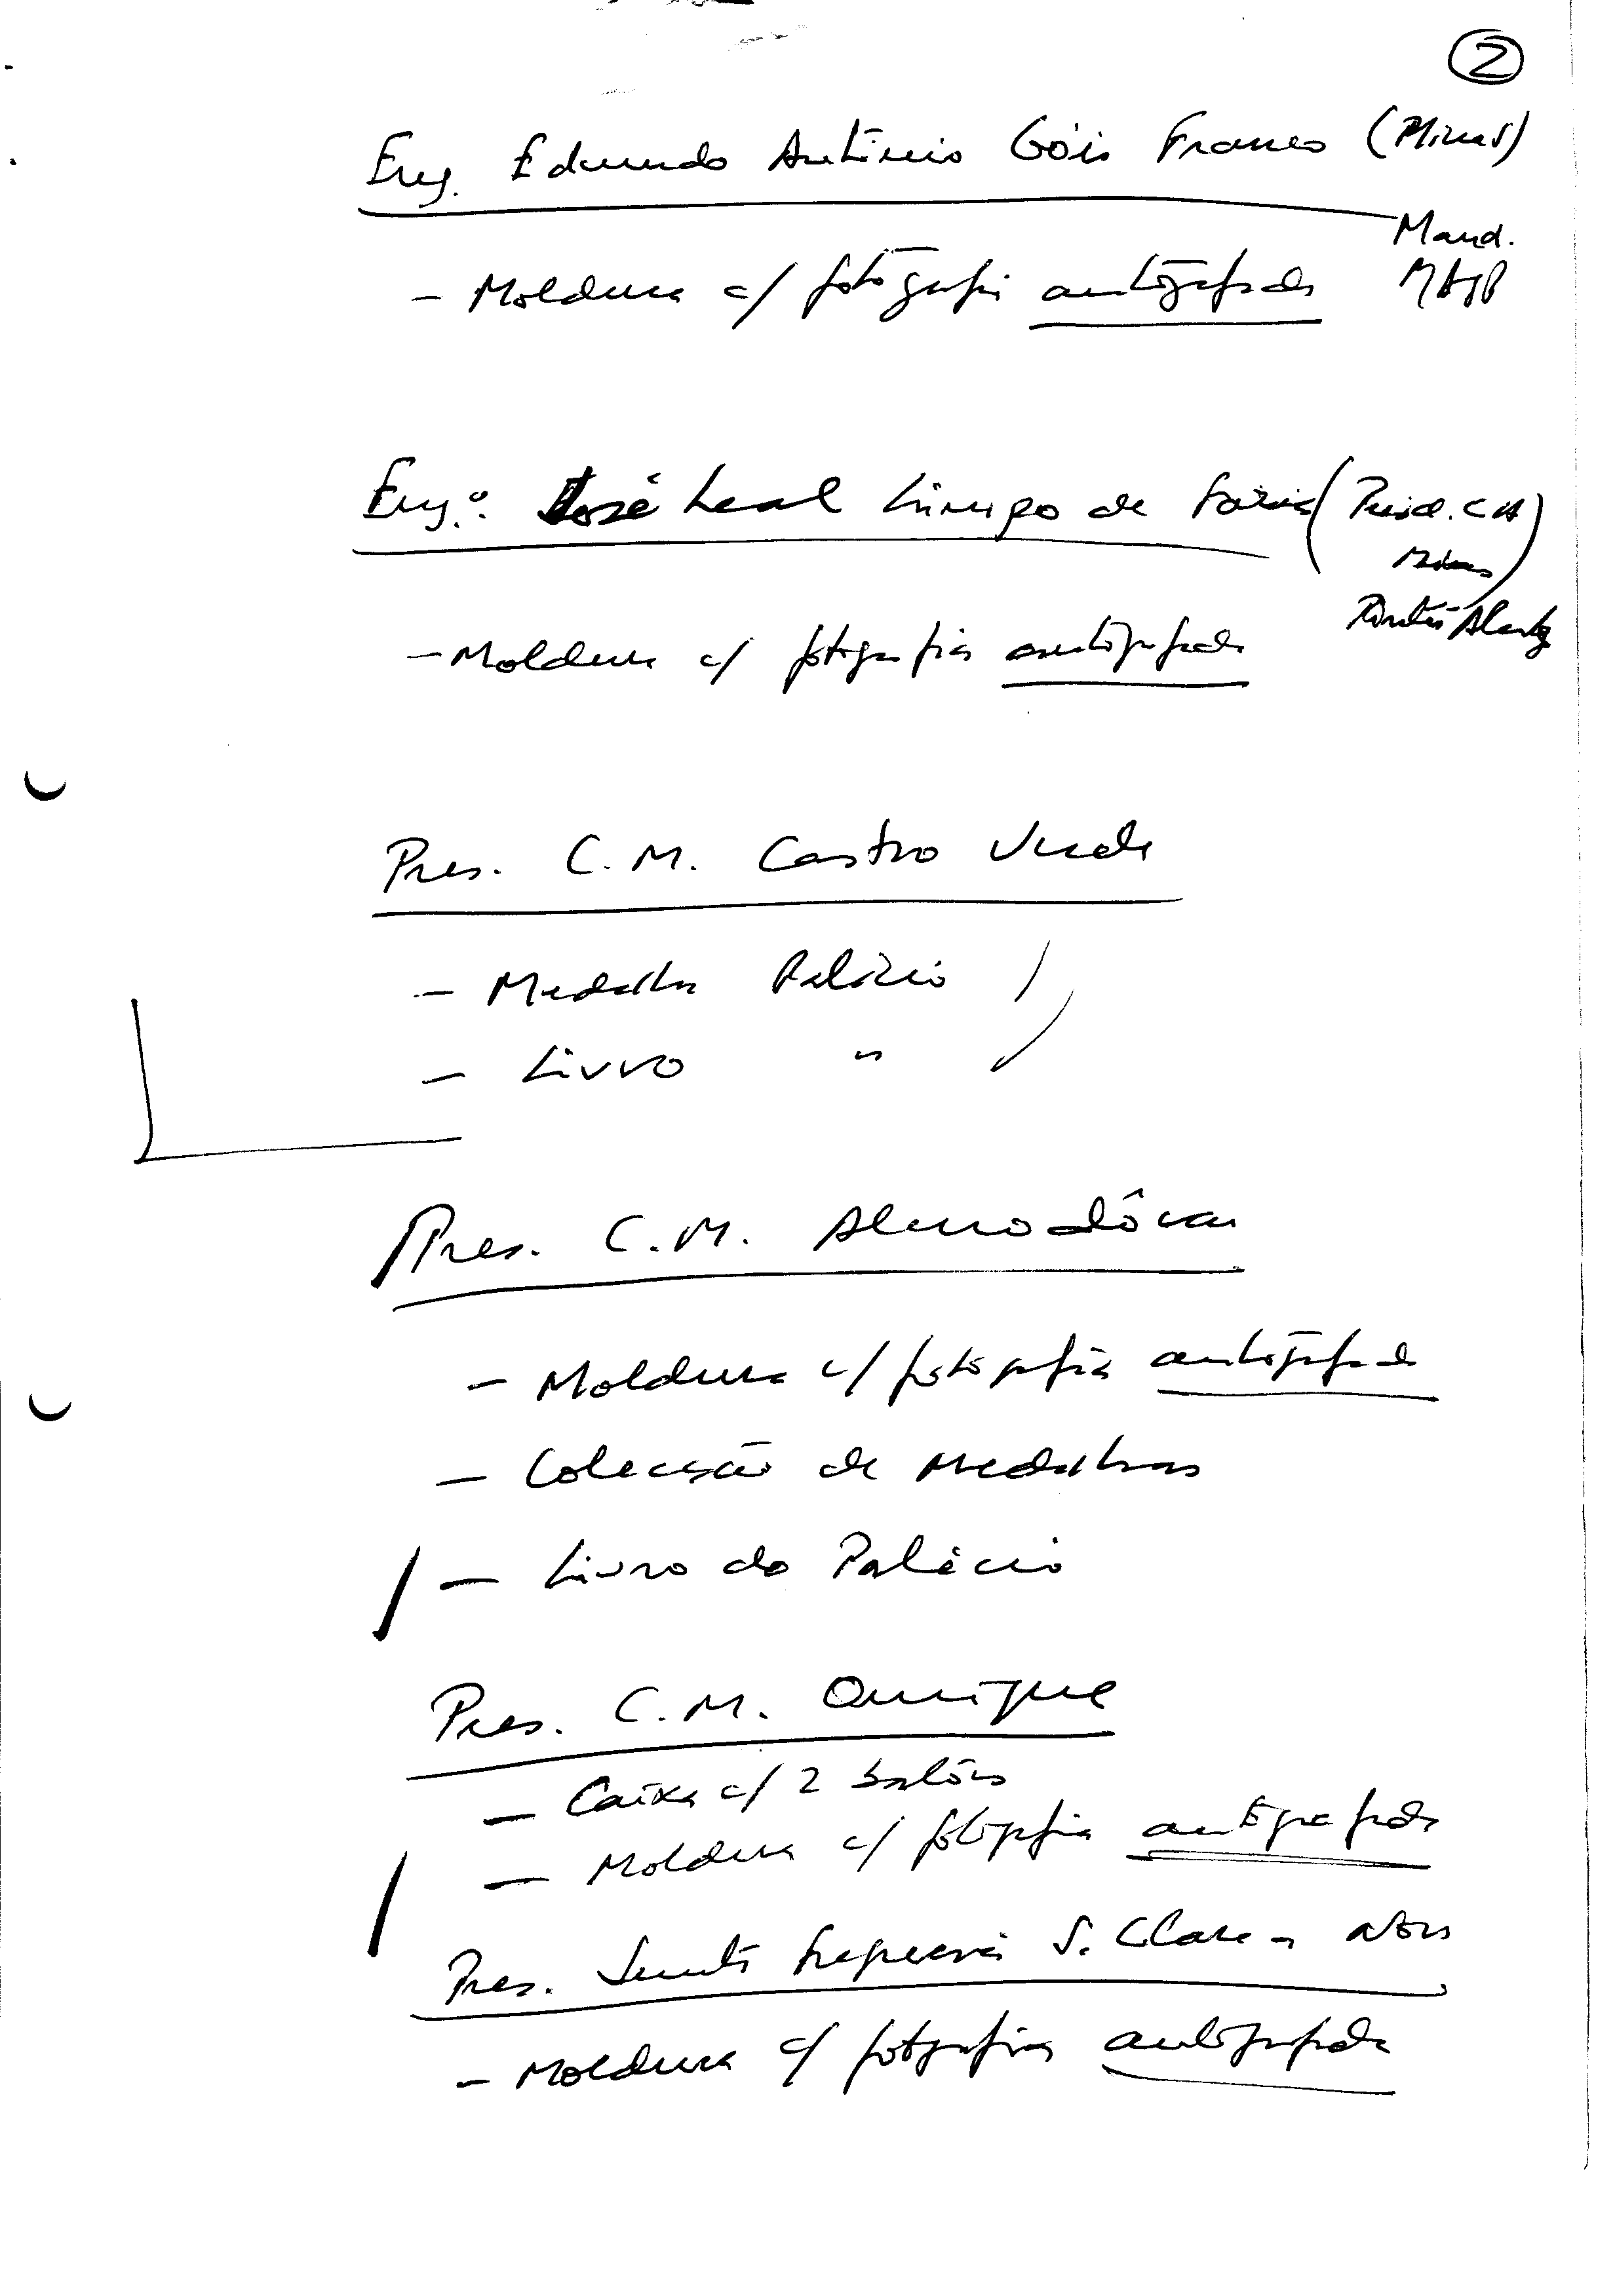 2
Eng. Edmundo António Góis Franco (Minas)
Mand.
- Moldura c/ fotografia autografada
Eng.º José Leal de Faria (Presid. CA
Minas)
- Moldura c/ fotografia autografada
Pres. C.M. Castro Verde
- Medalha Palácio
- Livro "
Pres. C.M. Almodôvar
- Moldura c/ fotografia autografada
- Colecção de Medalhas
- Livro do Palácio
Pres. C.M. Ourique
- Caixa c/ 2
- Moldura c/ fotografia autografada
Pres. Junta Freguesia S. Clara-a-Nova
- Moldura c/ fotografia autografada